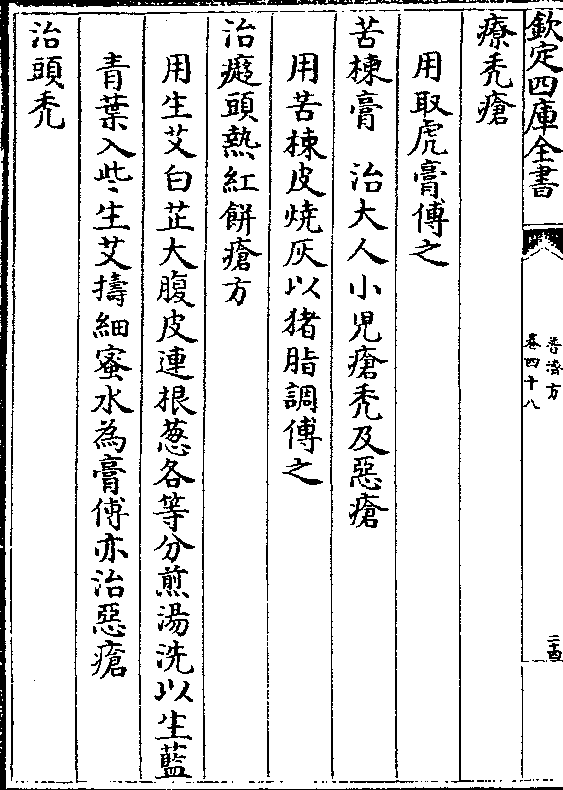 欽定四庫全書
普濟方
卷四十八
二十四
療禿瘡
用取虎膏傅之
苦楝膏　治大人小兒瘡禿及惡瘡
用苦楝皮燒灰以猪脂調傅之
治癡頭熱紅餅瘡方
用生艾白芷大腹皮連根葱各等分煎湯洗以生藍
青葉入些生艾擣細蜜水為膏傅亦治惡瘡
治頭禿